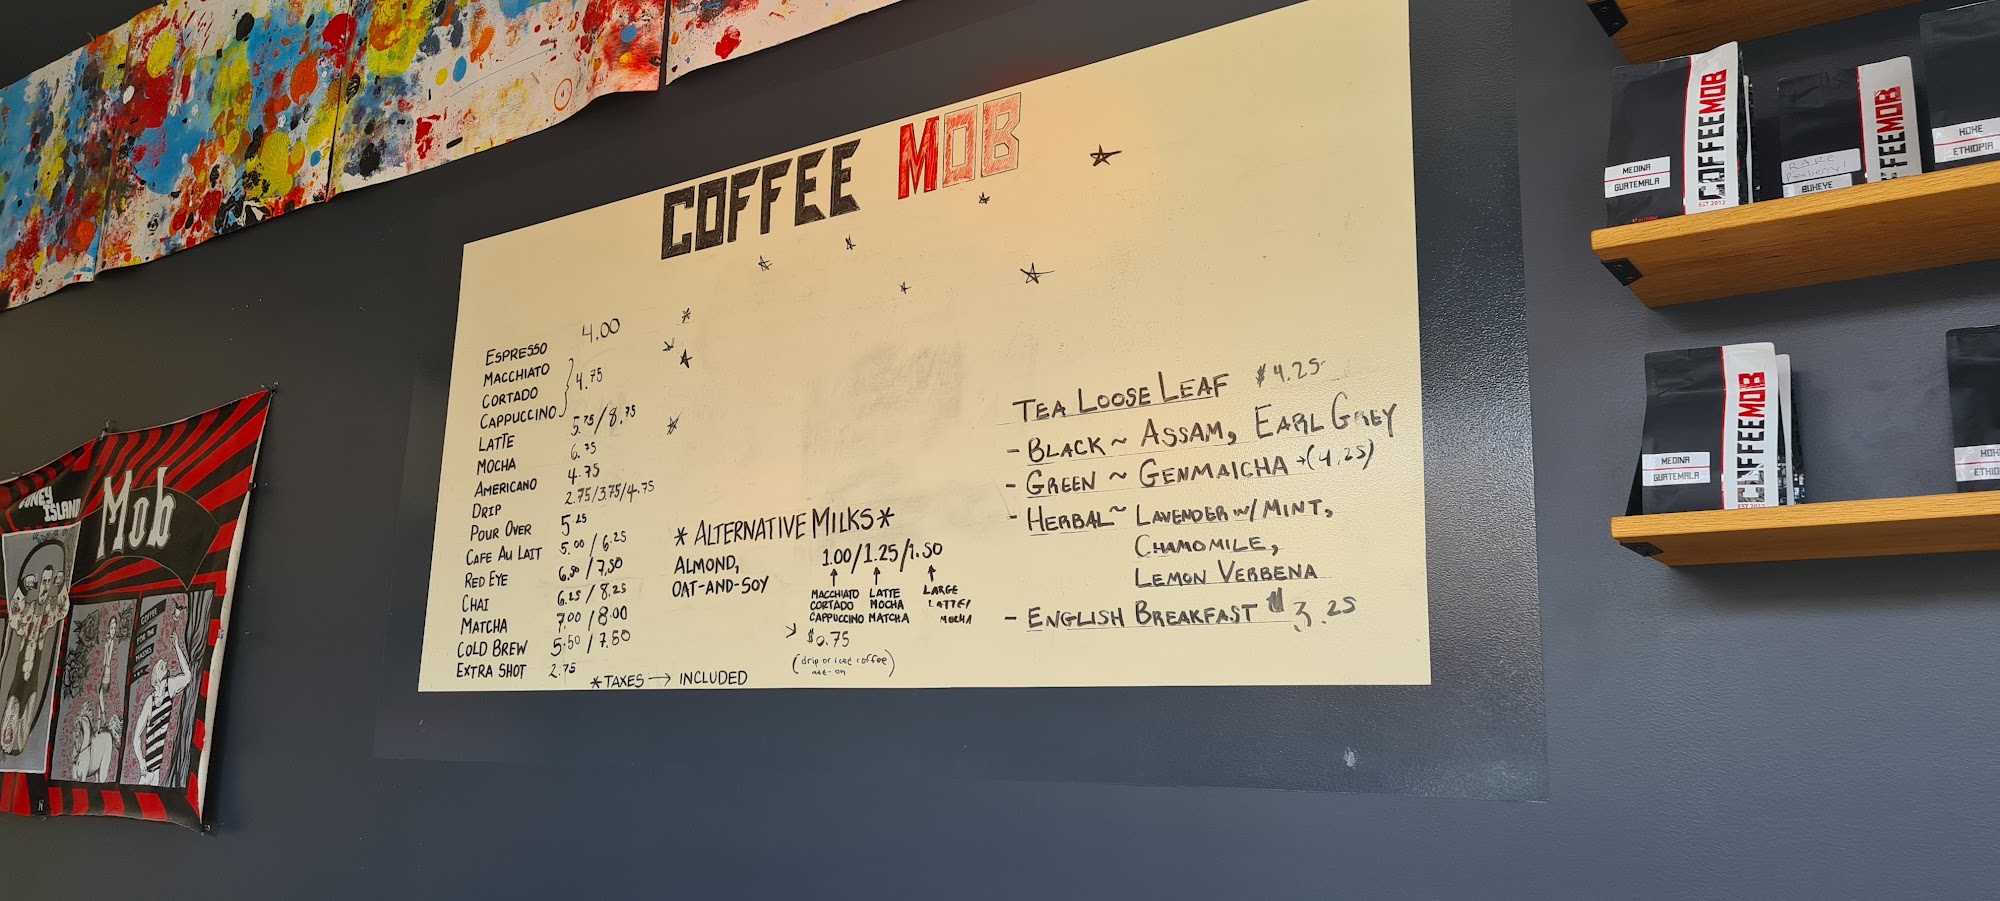 COFFEE MOB
ESPRESSO 4.00
MACCHIATO
CORTADO 4.75
CAPPUCCINO
LATTE 5.75/8.75
MOCHA 6.75
AMERICANO 4.75
DRIP 2.75/3.75/4.75
POUR OVER 5.25
CAFE AU LAIT 5.00/6.25
RED EYE 6.50/7.50
CHAI 6.25/8.25
MATCHA 7.00/8.00
COLD BREW 5.50/7.50
EXTRA SHOT 2.75
*TAXES → INCLUDED
*ALTERNATIVE MILKS*
ALMOND, 1.00/1.25/1.50
OAT-AND-SOY
MACCHIATO LATTE LARGE
CORTADO MOCHA LATTE/
CAPPUCCINO MATCHA MOCHA
$0.75
(drip or iced coffee
add-on)
TEA LOOSE LEAF $4.25
- BLACK ~ ASSAM, EARL GREY
- GREEN ~ GENMAICHA →(4.25)
- HERBAL ~ LAVENDER W/ MINT,
CHAMOMILE,
LEMON VERBENA
- ENGLISH BREAKFAST $3.25
CONEY
ISLAND
Mob
COFFEE
FOR THE
MASSES
COFFEEMOB
EST 2012
MEDINA
GUATEMALA
FEEMOB
RARE
Peaberry!
BUKEYE
HOKE
ETHIOPIA
COFFEEMOB
EST 2012
MEDINA
GUATEMALA
HOK
ETHIO